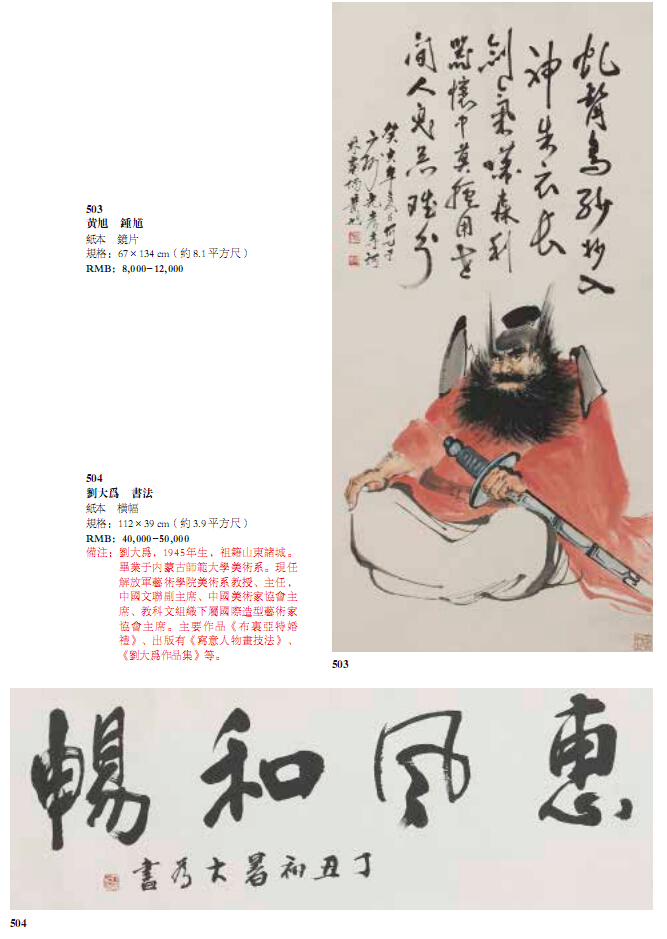 503
黄旭　鍾馗
紙本　鏡片
規格：67×134 cm（約8.1平方尺）
RMB：8,000-12,000
虬髯烏紗妙入
神朱衣長
劍氣森利
器懷中莫用世
間人鬼
503
504
劉大爲　書法
紙本　横幅
規格：112×39 cm（約3.9平方尺）
RMB：40,000-50,000
備注：劉大爲，1945年生，祖籍山東諸城。
畢業于内蒙古師範大學美術系。現任
解放軍藝術學院美術系教授、主任，
中國文聯副主席、中國美術家協會主
席、教科文組織下屬國際造型藝術家
協會主席。主要作品《布裏亞特婚
禮》、出版有《寫意人物畫技法》、
《劉大爲作品集》等。
惠風和暢
丁丑初暑大为書
504